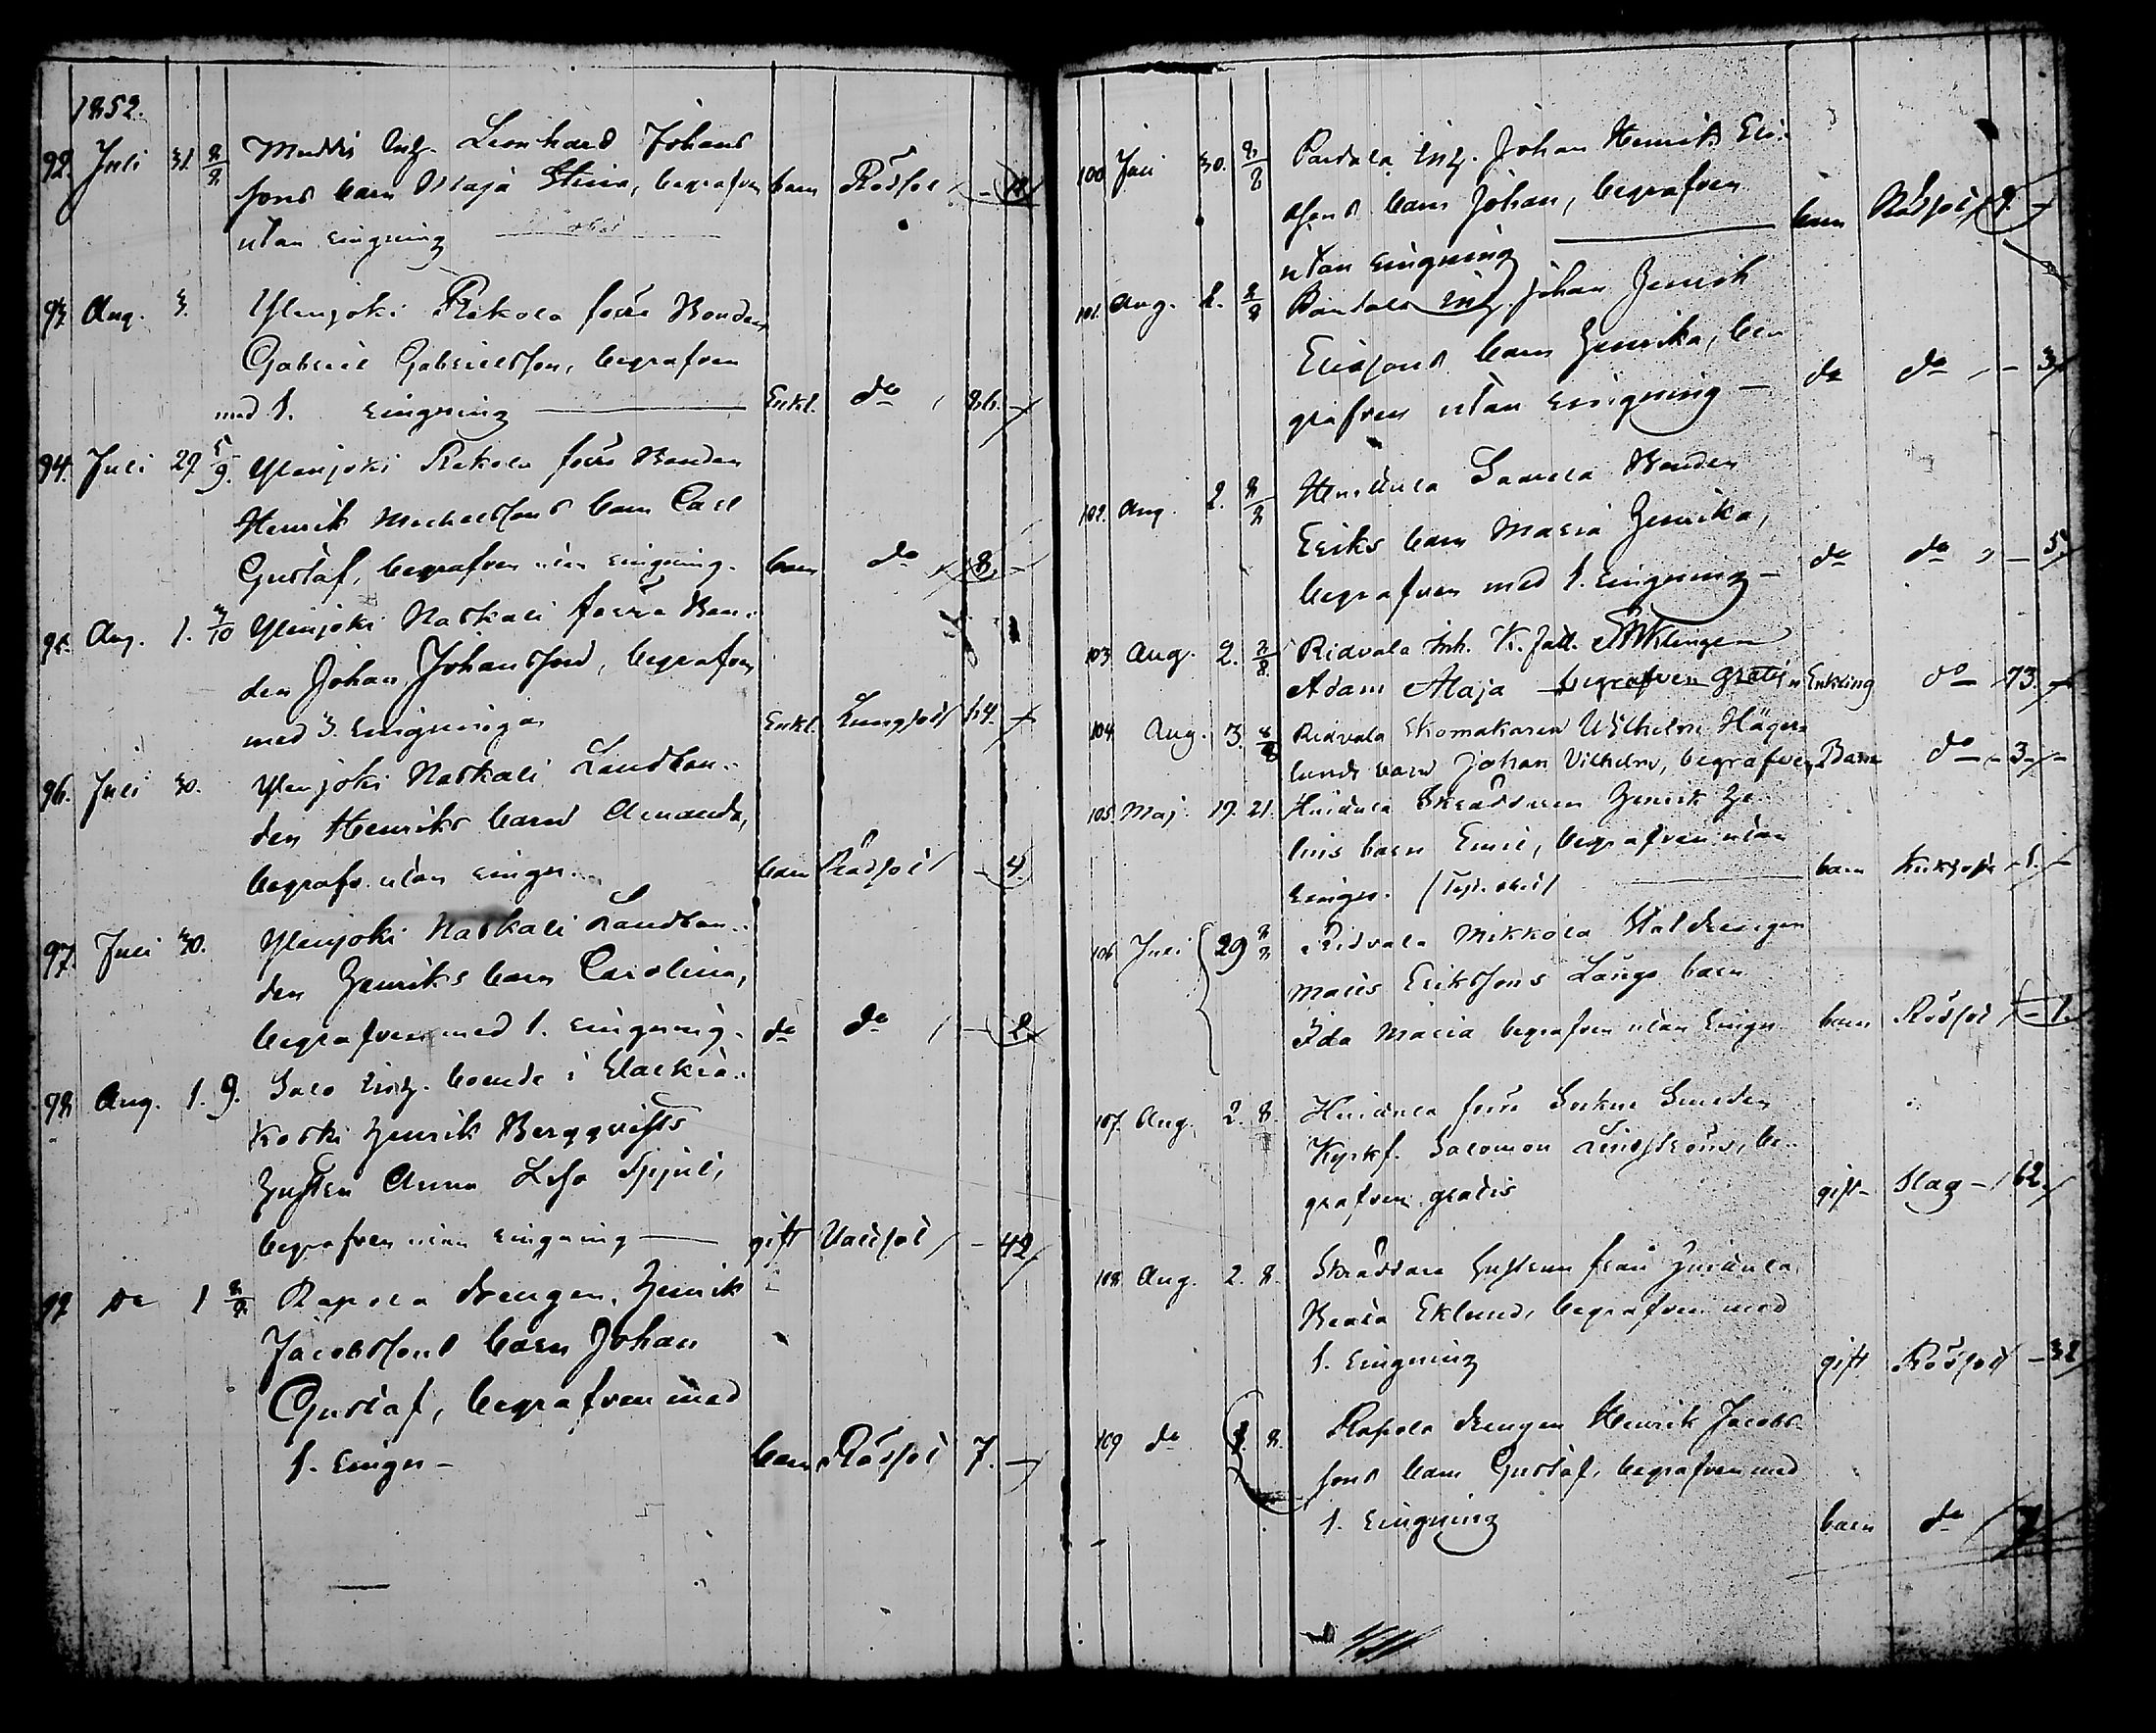 1852.
92. Juli 31. 8/8 Muddis Inh. Leonhard Johans
sons barn Maja Stina, begrafven barn Rödsot
utan ringning
93. Aug. 3. Ylenjoki Rekola förre Bonden
Gabriel Gabrielsson, begrafven
med 1. ringning Enkl. do 86. -
94. Juli 29 5/9. Ylenjoki Rekola förre Bonden
Henrik Michelssons barn Carl
Gustaf, begrafven utan ringning. barn do 8. -
95. Aug. 1. 3/10 Ylenjoki Naskali förre Bon-
den Johan Johansson, begrafven
med 3. ringningar Enkl. Lungsot 64. -
96. Juli 30. Ylenjoki Naskali Landbon-
den Henriks barn Amanda,
begrafv. utan ringn. barn Rödsot - 4.
97. Juli 30. Ylenjoki Naskali Landbon-
den Henriks barn Carolina,
begrafven med 1. ringning. do do - 2.
98. Aug. 1. 9. Salo Inh. boende i
Koski Henrik Bergqvists
Hustru Anna Lisa
begrafven utan ringning gift - 42
99. do 1 8/8 Rapola drengen Henrik
Jacobssons barn Johan
Gustaf, begrafven med
1. ringn - barn Rödsot 7. -
100. Juli 30. 8/8 Inh. Johan Henrik Eli-
asons barn Johan, begrafven
utan ringning barn Rödsot 9. -
101. Aug. 2. 8/8 Inh. Johan Henrik
Eliasons barn Henrika, be-
grafven utan ringning - do do - 3
102. Aug. 2. 8/8 Bonden
Eriks barn Maria Henrika,
begrafven med 1. ringning - do do - 5
103 Aug. 2. 8/8. Ridvala Inh. K. fatt. Enklingen
Adam Maja begrafven gratis Enkling do 73. -
104 Aug. 3. 8/8 Ridvala Skomakaren Wilhelm Häger-
lunds barn Johan Vilhelm, begrafven Barn do - 3 -
105. Maj. 17. 21. Skräddaren Henrik
barn Emil, begrafven utan
ringn. barn Kikhosta - 1. -
106 Juli 29 8/8 Ridvala Mikkola Staldrengen
Matts Erikssons Långs barn
Ida Maria begrafven utan ringn barn Rödsot - 1.
107. Aug. 2. 8. förre Smeden
Kyrkf. Salomon Lindström, be-
grafven gratis gift - Slag - 62.
108. Aug. 2. 8. Skräddare hustrun från
Eklund, begrafven med
1. ringning gift Rödsot - 32
109 do 8. Rapola drengen Henrik Jacobs-
sons barn Gustaf, begrafven med
1. ringning barn do 7